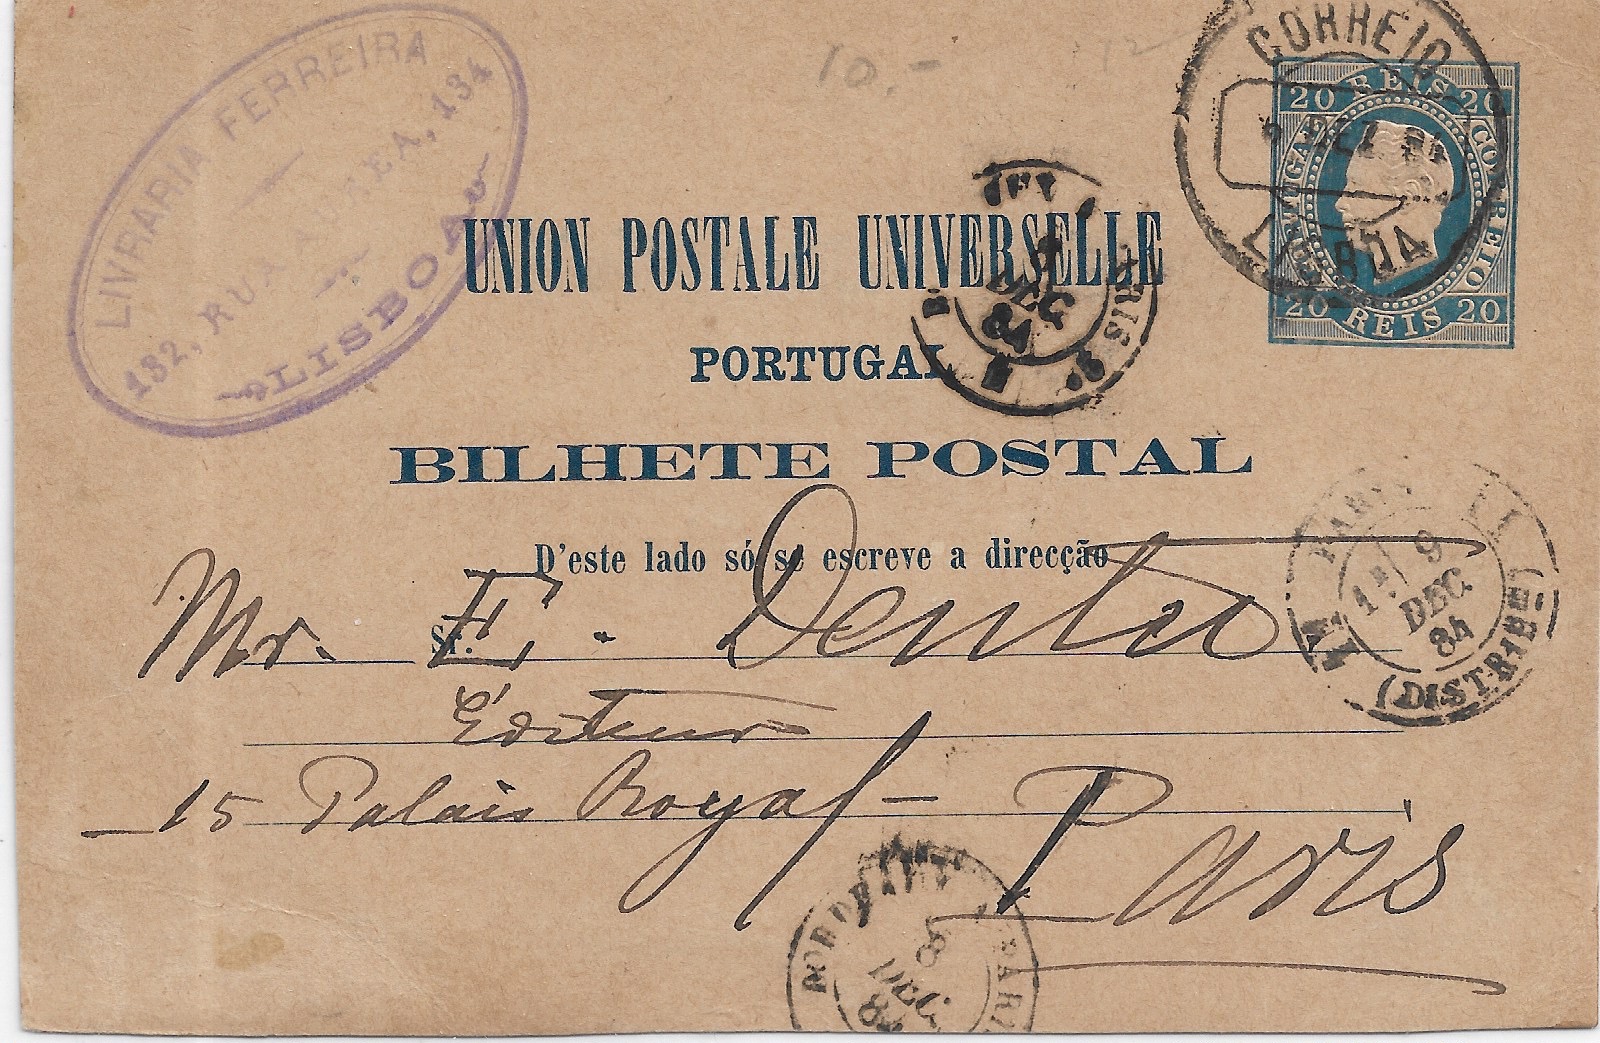 10.-
LIVRARIA FERREIRA
132, RUA AUREA, 134
LISBOA
CORREIO
DEZ 84
LISBOA
20 REIS 20
PORTUGAL
CORREIO
20 REIS 20
UNION POSTALE UNIVERSELLE
9
DEC
84
PORTUGAL
BILHETE POSTAL
D'este lado só se escreve a direcção
PARIS
1E 9
DEC
84
(DISTRIB)
Sr.
Mr. E. Dentu
Éditeur
15 Palais Royal - Paris
8
DEC